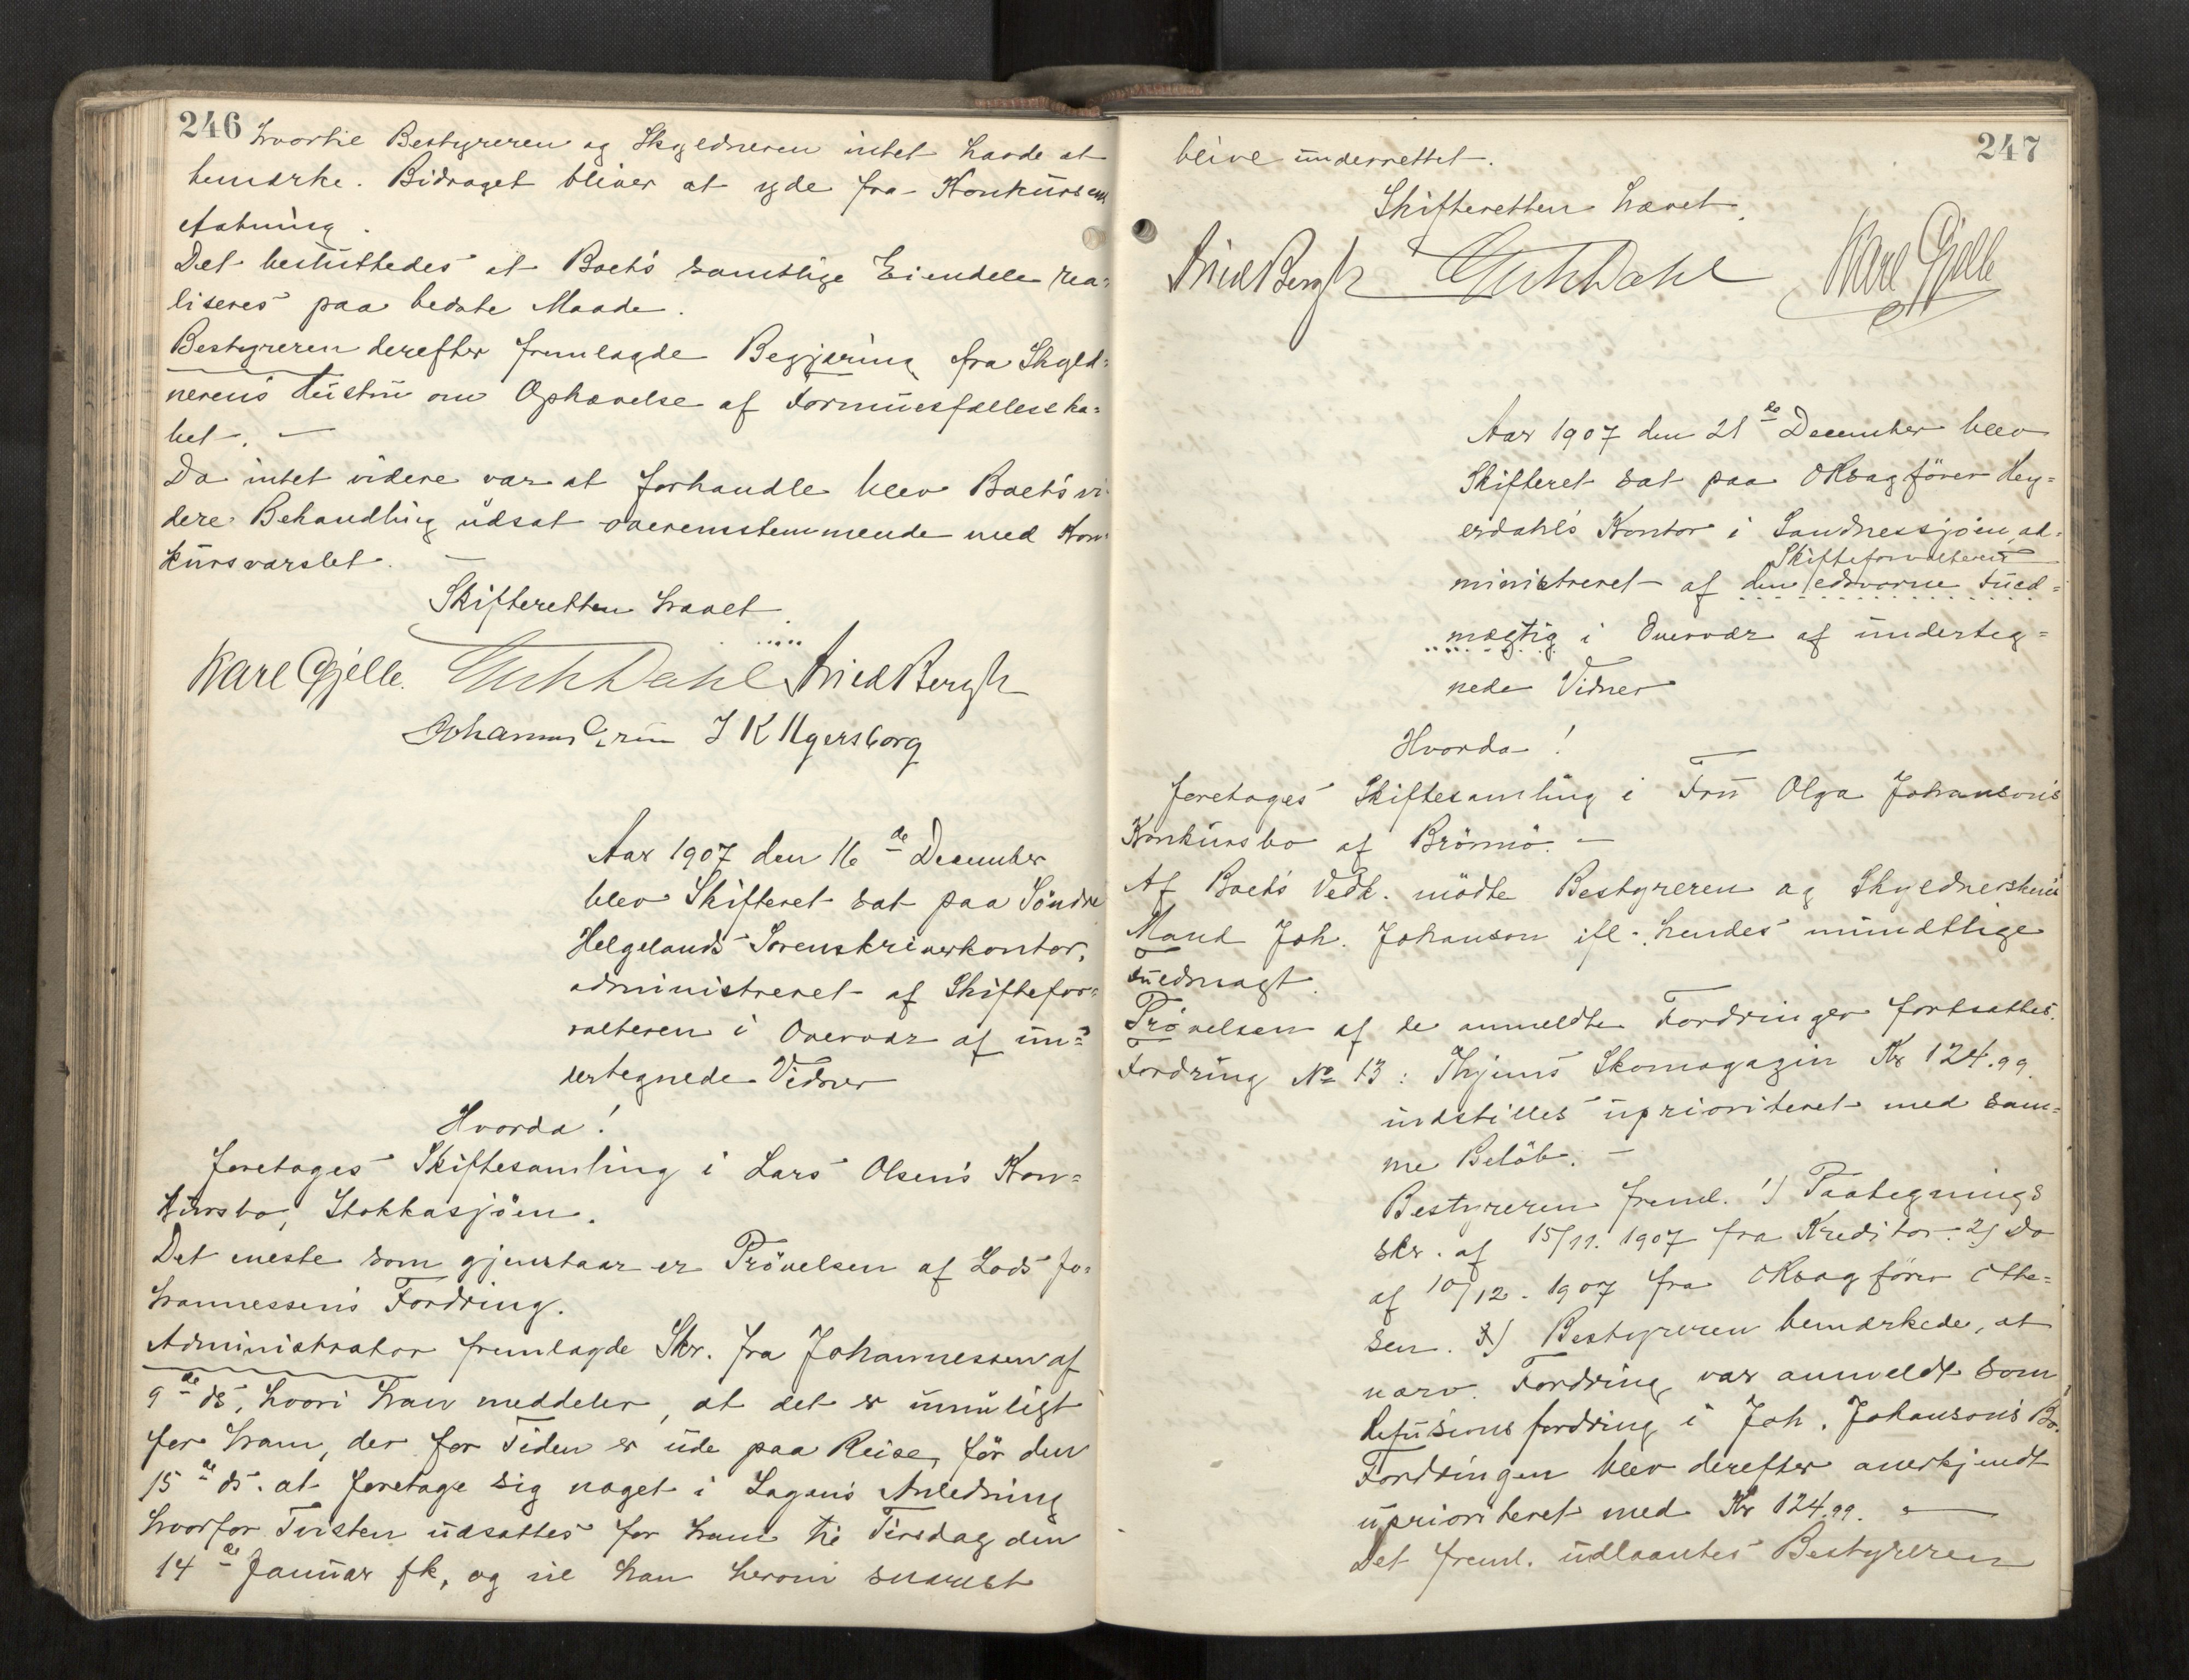 246
hvortil Bestyreren og Skyldneren intet havde at
bemærke. Bidraget bliver at yde fra Konkursens
Aabning.
Det besluttedes at Boets samtlige Eiendele rea-
liseres paa bedste Maade.
Bestyreren derefter fremlagde Begjæring fra Skyld-
nerens Hustru om Ophævelse af Formuesfællesska-
bet. —
Da intet videre var at forhandle blev Boets vi-
dere Behandling udsat overensstemmende med Kon-
kursvarslet.
Skifteretten hævet.
Karl Gjelle. Dahl Bergh
Johannes Grün J K Ugersborg
Aar 1907 den 16de December
blev Skifteret sat paa Söndre
Helgelands Sorenskriverkontor,
administreret af Skiftefor-
valteren i Overvær af un-
dertegnede Vidner
Hvorda!
foretages Skiftesamling i Lars Olsens Kon-
kursbo, Stokkasjöen.
Det eneste som gjenstaar er Prövelsen af Lods Jo-
hannessens Fordring.
Administrator fremlagde Skr. fra Johannessen af
9de ds, hvori han meddeler, at det er umuligt
for ham, der for Tiden er ude paa Reise, för den
15de ds. at foretage sig noget i Sagens Anledning
hvorfor Tvisten udsattes for ham til Tirsdag den
14de Januar fk, og vil han herom snarest
247
blive underrettet.
Skifteretten hævet.
Bergh Dahl Karl Gjelle
Aar 1907 den 21de December blev
Skifteret sat paa ORsagförer Hey-
erdahls Kontor i Sandnessjöen, ad-
Skifteforvalterens
ministreret af den edsvorne Fuld-
mægtig i Overvær af underteg-
nede Vidner
Hvorda!
foretages Skiftesamling i Fru Olga Johansons
Konkursbo af Brönnö. —
Af Boets Vedk. mödte Bestyreren og Skyldnerskens
Mand Joh. Johanson ifl. hendes mundtlige
Fuldmagt.
Prövelsen af de anmeldte Fordringer fortsattes.
Fordring No 13: Thjems Skomagazin Kr 124.99.
indstilles uprioriteret med sam-
me Belöb. —
Bestyreren freml. 1) Paategnings
skr. af 15/11. 1907 fra Kreditor. 2) Do
af 10/12. 1907 fra ORsagförer Otte-
sen. 3) Bestyreren bemærkede, at
nærv. Fordring var anmeldt som
Refusionsfordring i Joh. Johansons Bo.
Fordringen blev derefter anerkjendt
uprioriteret med Kr 124.99. —
Det freml. udlaantes Bestyreren